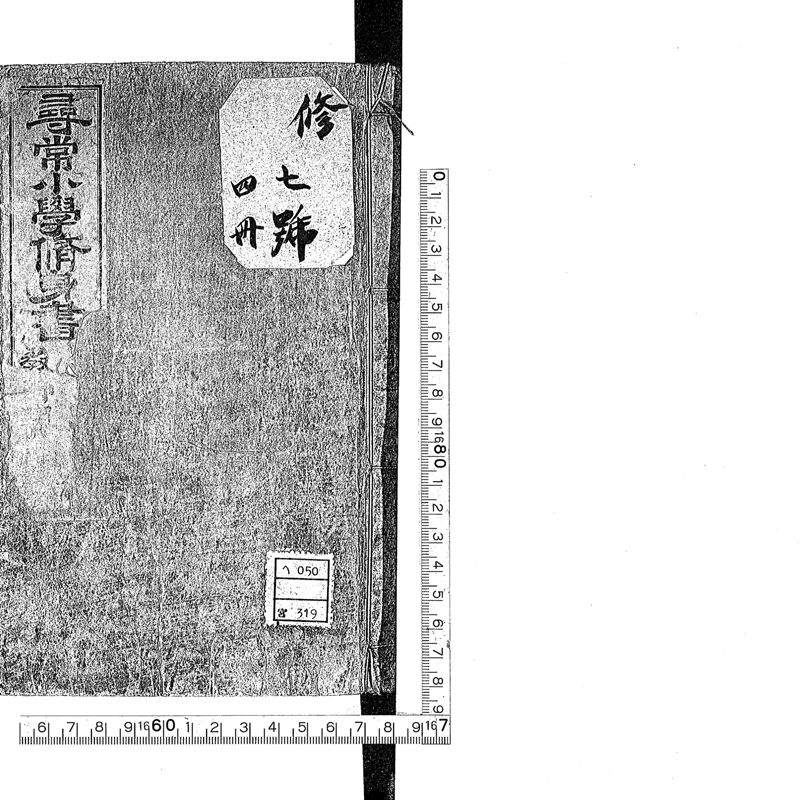 修
七號
四冊
尋常小學脩身書
教
050
319
0 1 2 3 4 5 6 7 8 9 16 80 1 2 3 4 5 6 7 8 9
6 7 8 9 16 60 1 2 3 4 5 6 7 8 9 16 7